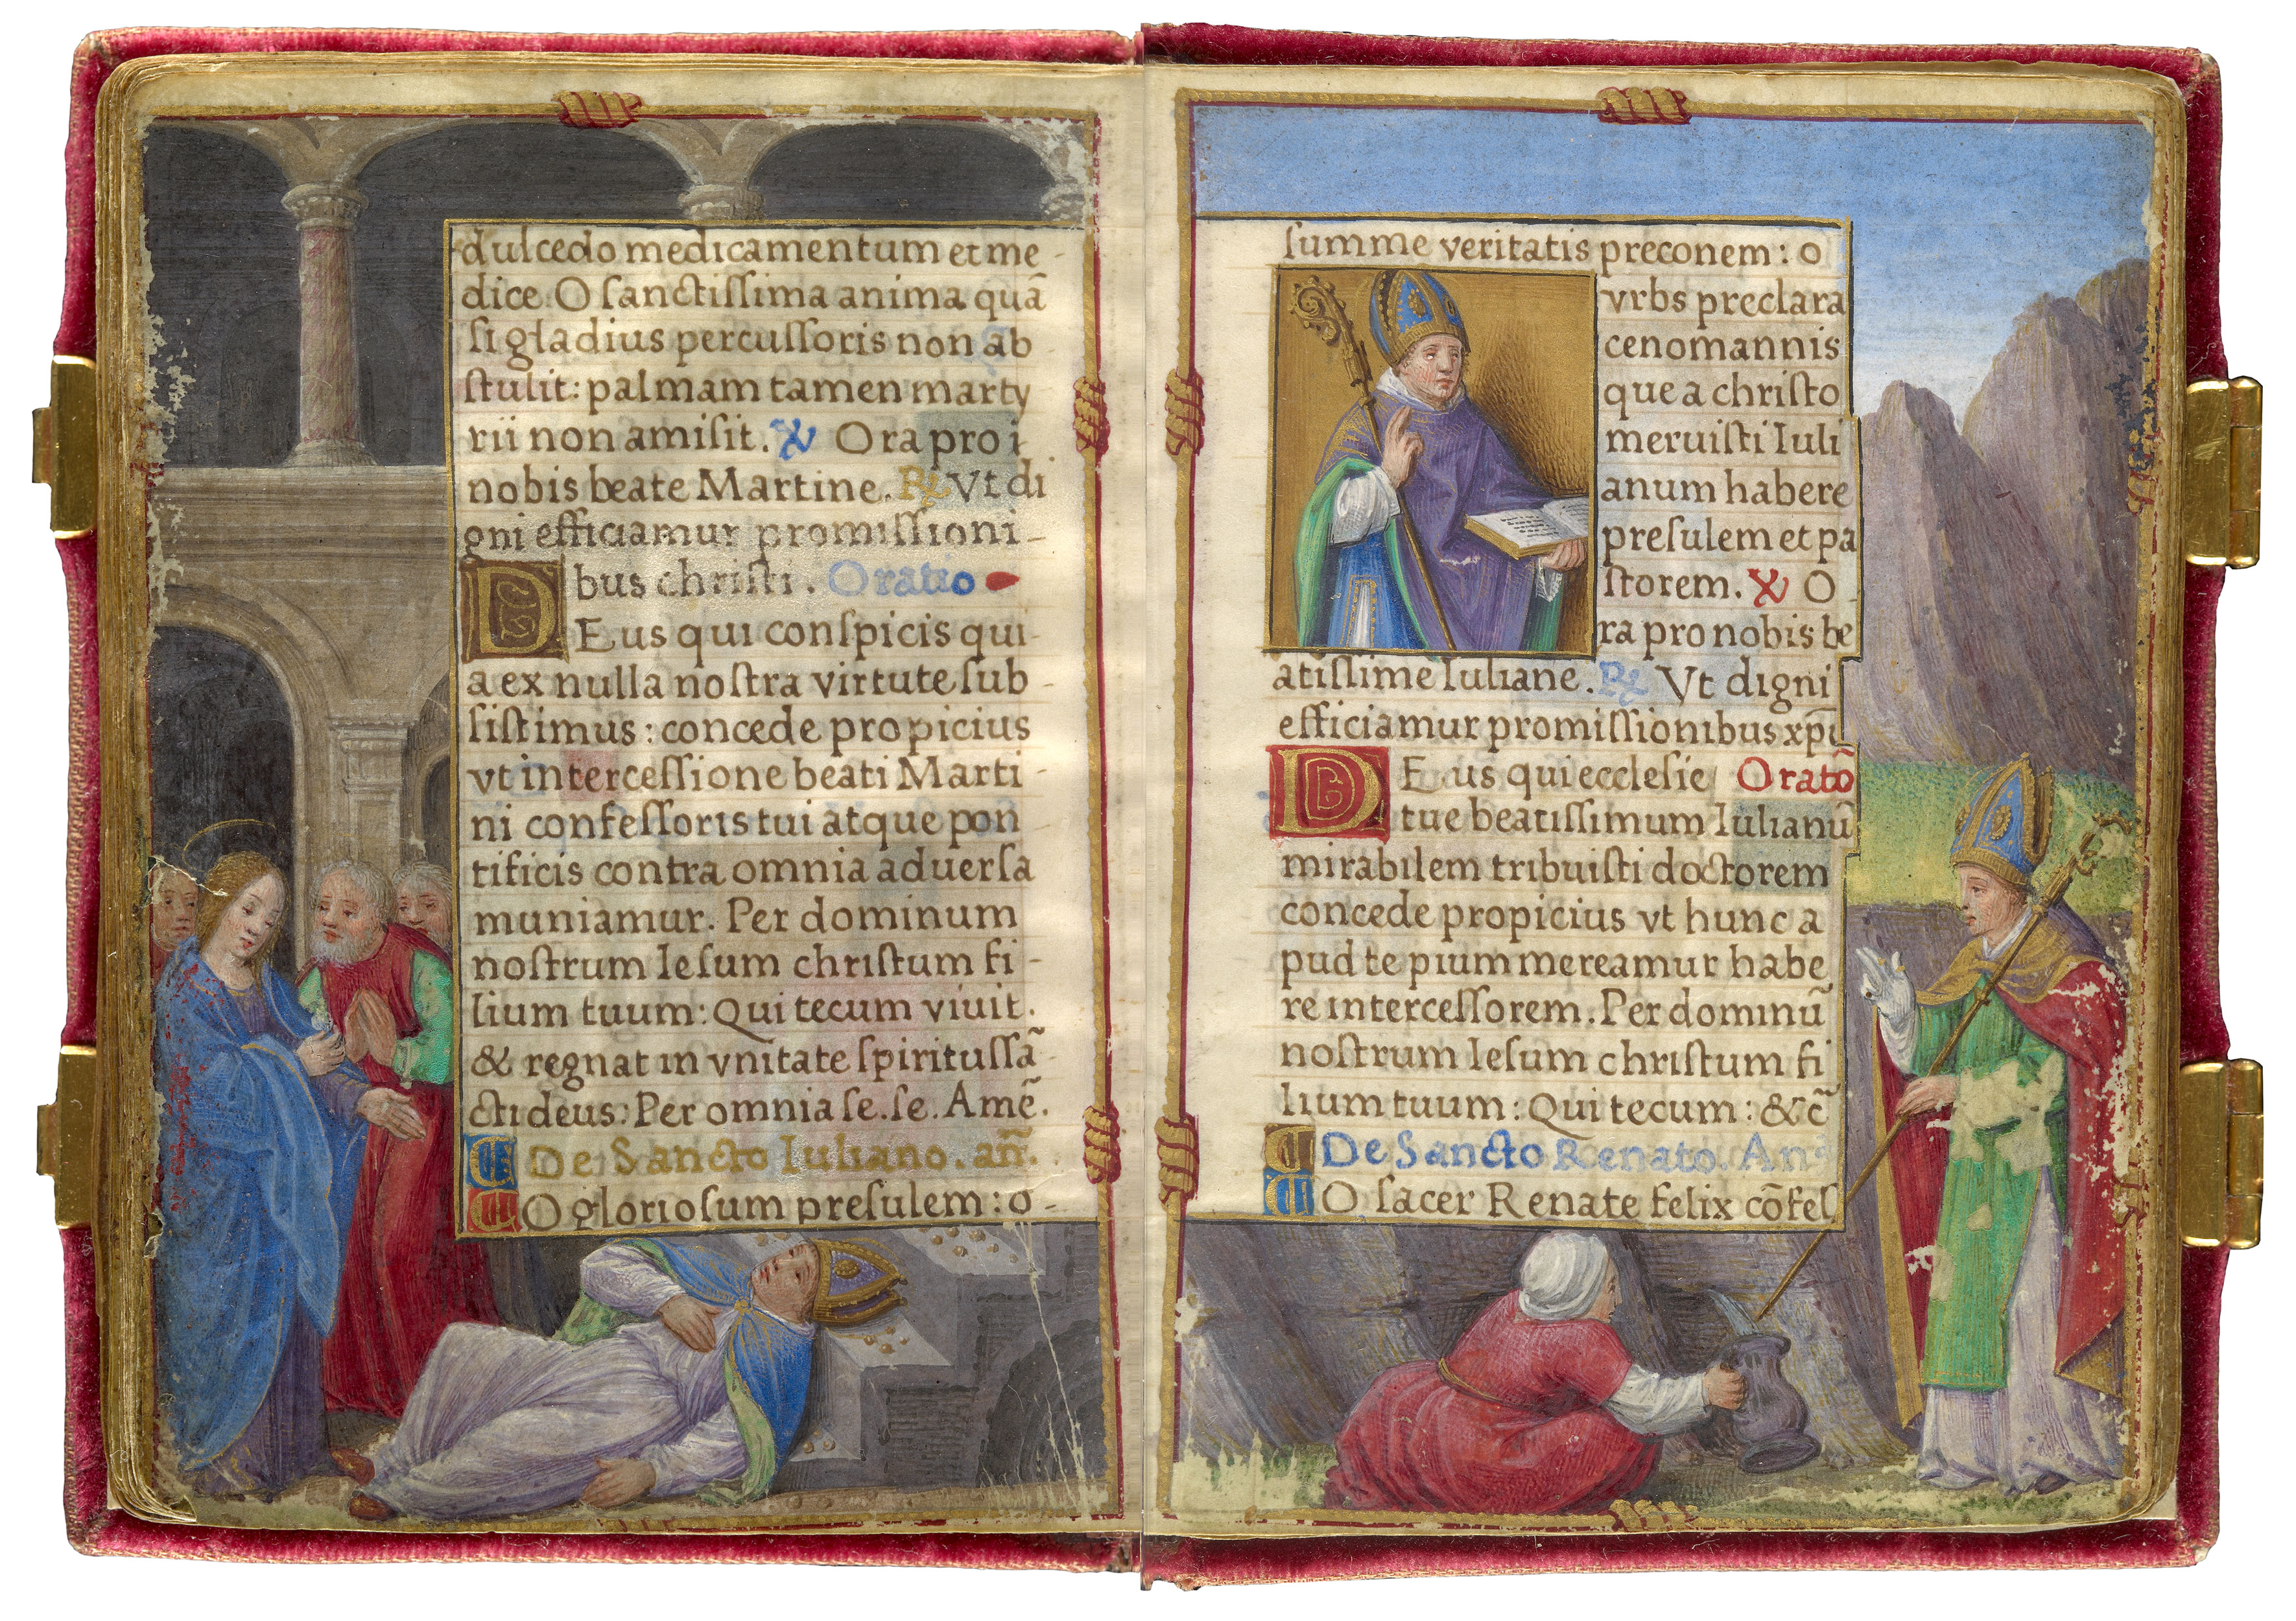 dulcedo medicamentum et me-
dice: O sanctissima anima quā
si gladius percussoris non ab
stulit: palmam tamen marty
rii non amisit. ℣ Ora pro i
nobis beate Martine. ℟ Vt di
gni efficiamur promissioni-
bus christi. Oratio
DEus qui conspicis qui-
a ex nulla nostra virtute sub-
sistimus: concede propicius
vt intercessione beati Marti-
ni confessoris tui atque pon
tificis contra omnia aduersa
muniamur. Per dominum
nostrum Iesum christum fi-
lium tuum: Qui tecum viuit.
& regnat in vnitate spiritus sā
cti deus: Per omnia se. se. Amē.
De Sancto Iuliano. añ.
O gloriosum presulem: o-
summe veritatis preconem: o
vrbs preclara
cenomannis
que a christo
meruisti Iuli
anum habere
presulem et pa
storem. ℣ O
ra pro nobis be
atissime Iuliane. ℟ Vt digni
efficiamur promissionibus xp̄i
DEus qui ecclesie Oratō
tue beatissimum Iulianū
mirabilem tribuisti doctorem
concede propicius vt hunc a
pud te pium mereamur habe
re intercessorem. Per dominū
nostrum Iesum christum fi
lium tuum: Qui tecum: &c̄
De Sancto Renato. Anᵃ
O sacer Renate felix cōfes